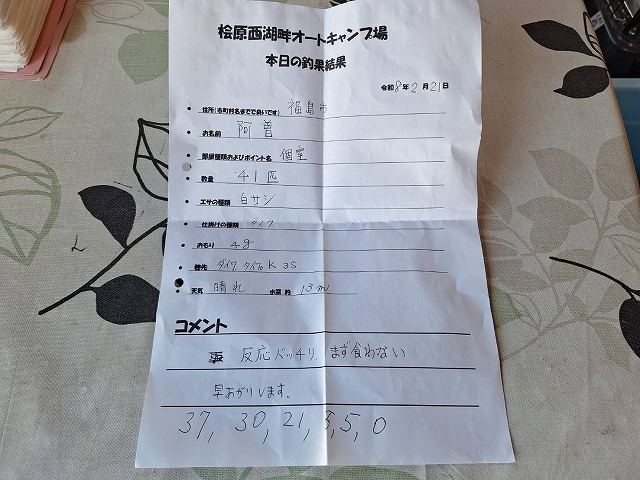 桧原西湖畔オートキャンプ場
本日の釣果結果
令和8年2月21日
住所(市町村名までで良いです) 福島市
お名前 阿曽
部屋種類およびポイント名 個室
数量 41匹
エサの種類 白サシ
仕掛けの種類
おもり 4g
穂先 ダイワ タイプK 3S
天気 晴れ 水深 約 13m
コメント
反応バッチリ まず食わない
早あがりします。
37, 30, 21, 5, 0